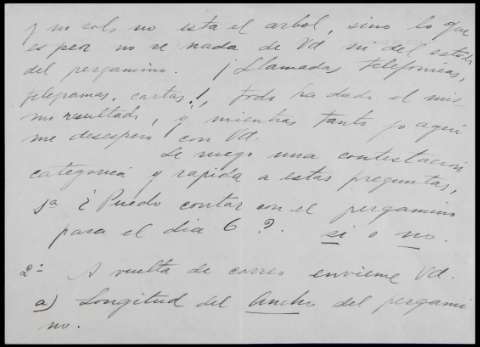 y no solo no esta el arbol, sino lo que
es peor no se nada de Vd ni del estado
del pergamino. ¡Llamadas telefonicas,
telegramas, cartas!, todo ha dado el mis
mo resultado, y mientras tanto yo aqui
me desespero con Vd.
Le ruego una contestación
categorica y rapida a estas preguntas,
1a ¿Puedo contar con el pergamino
para el dia 6?. si o no.
2ª A vuelta de correo envieme Vd.
a) Longitud del ancho del pergami
no.